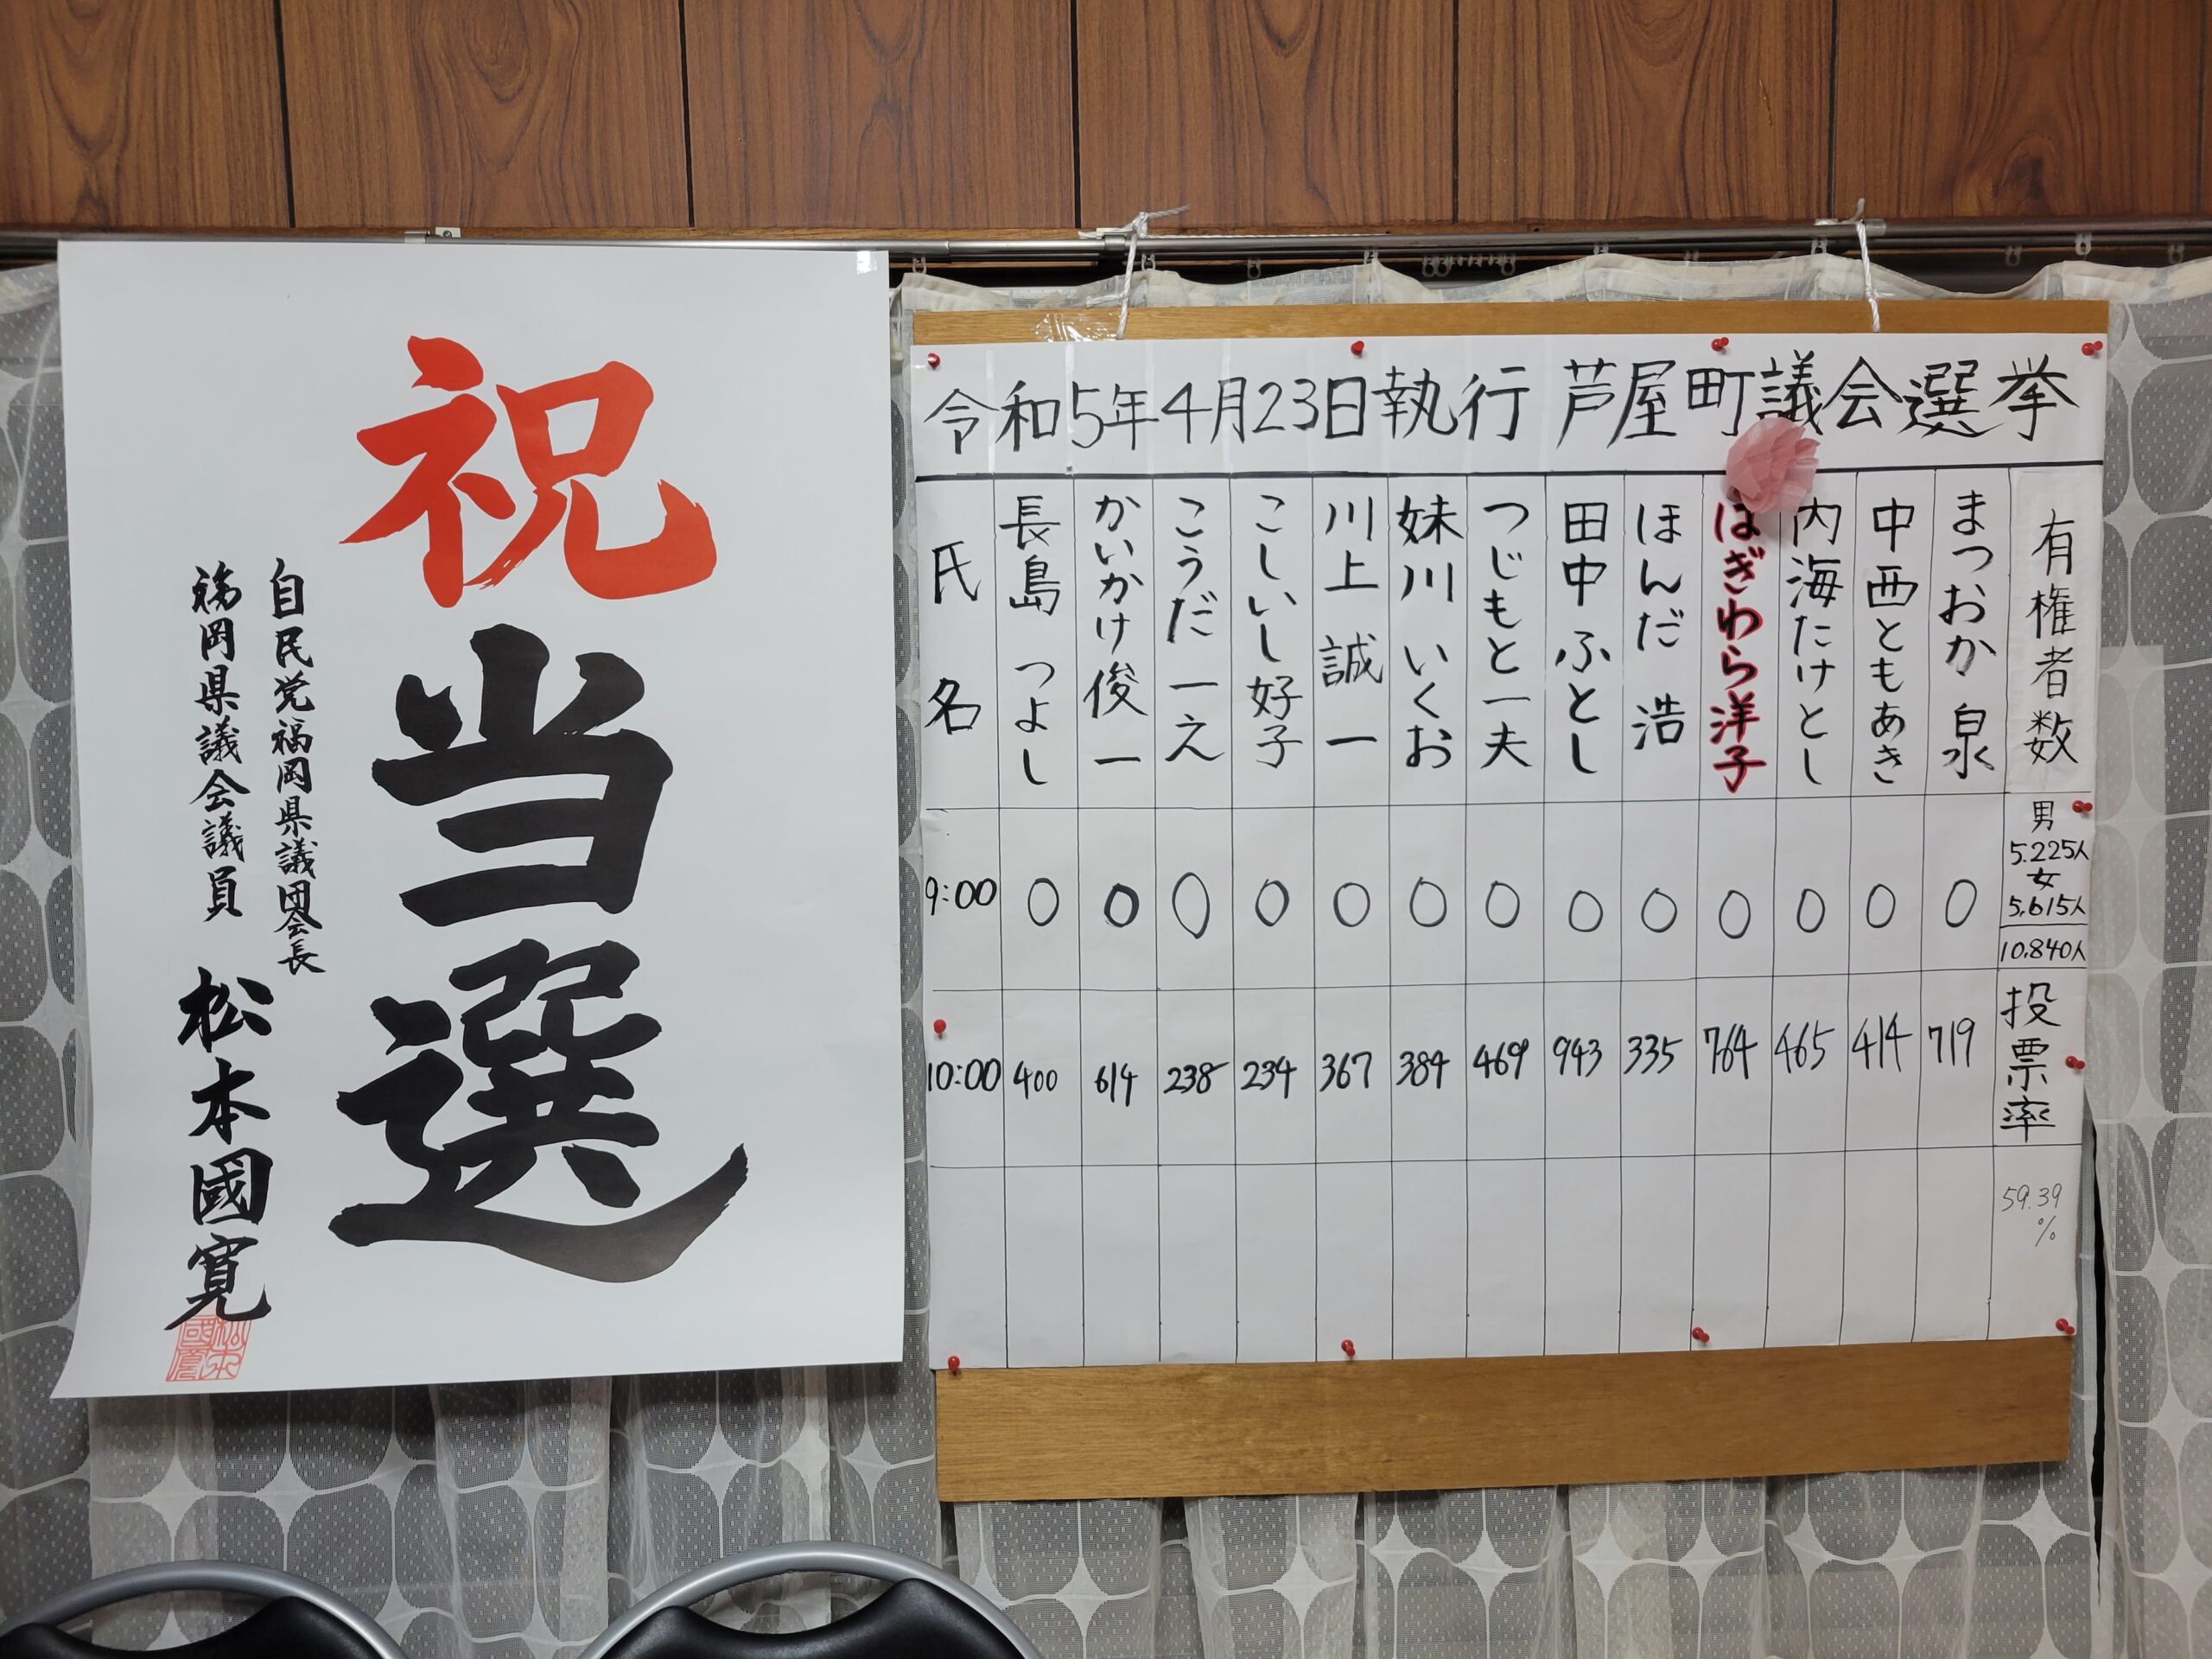 祝
当選
自民党福岡県議団会長
福岡県議会議員
松本國寛
令和5年4月23日執行 芦屋町議会選挙
氏名 長島 つよし かいかけ俊一 こうだ 一え こしいし好子 川上 誠一 妹川 いくお つじもと一夫 田中 ふとし ほんだ 浩 はぎわら洋子 内海たけとし 中西ともあき まつおか 泉 有権者数
9:00 0 0 0 0 0 0 0 0 0 0 0 0 0
男
5.225人
女
5.615人
10.840人
10:00 400 614 238 234 367 384 469 943 335 764 465 414 719 投票率
59.39
%